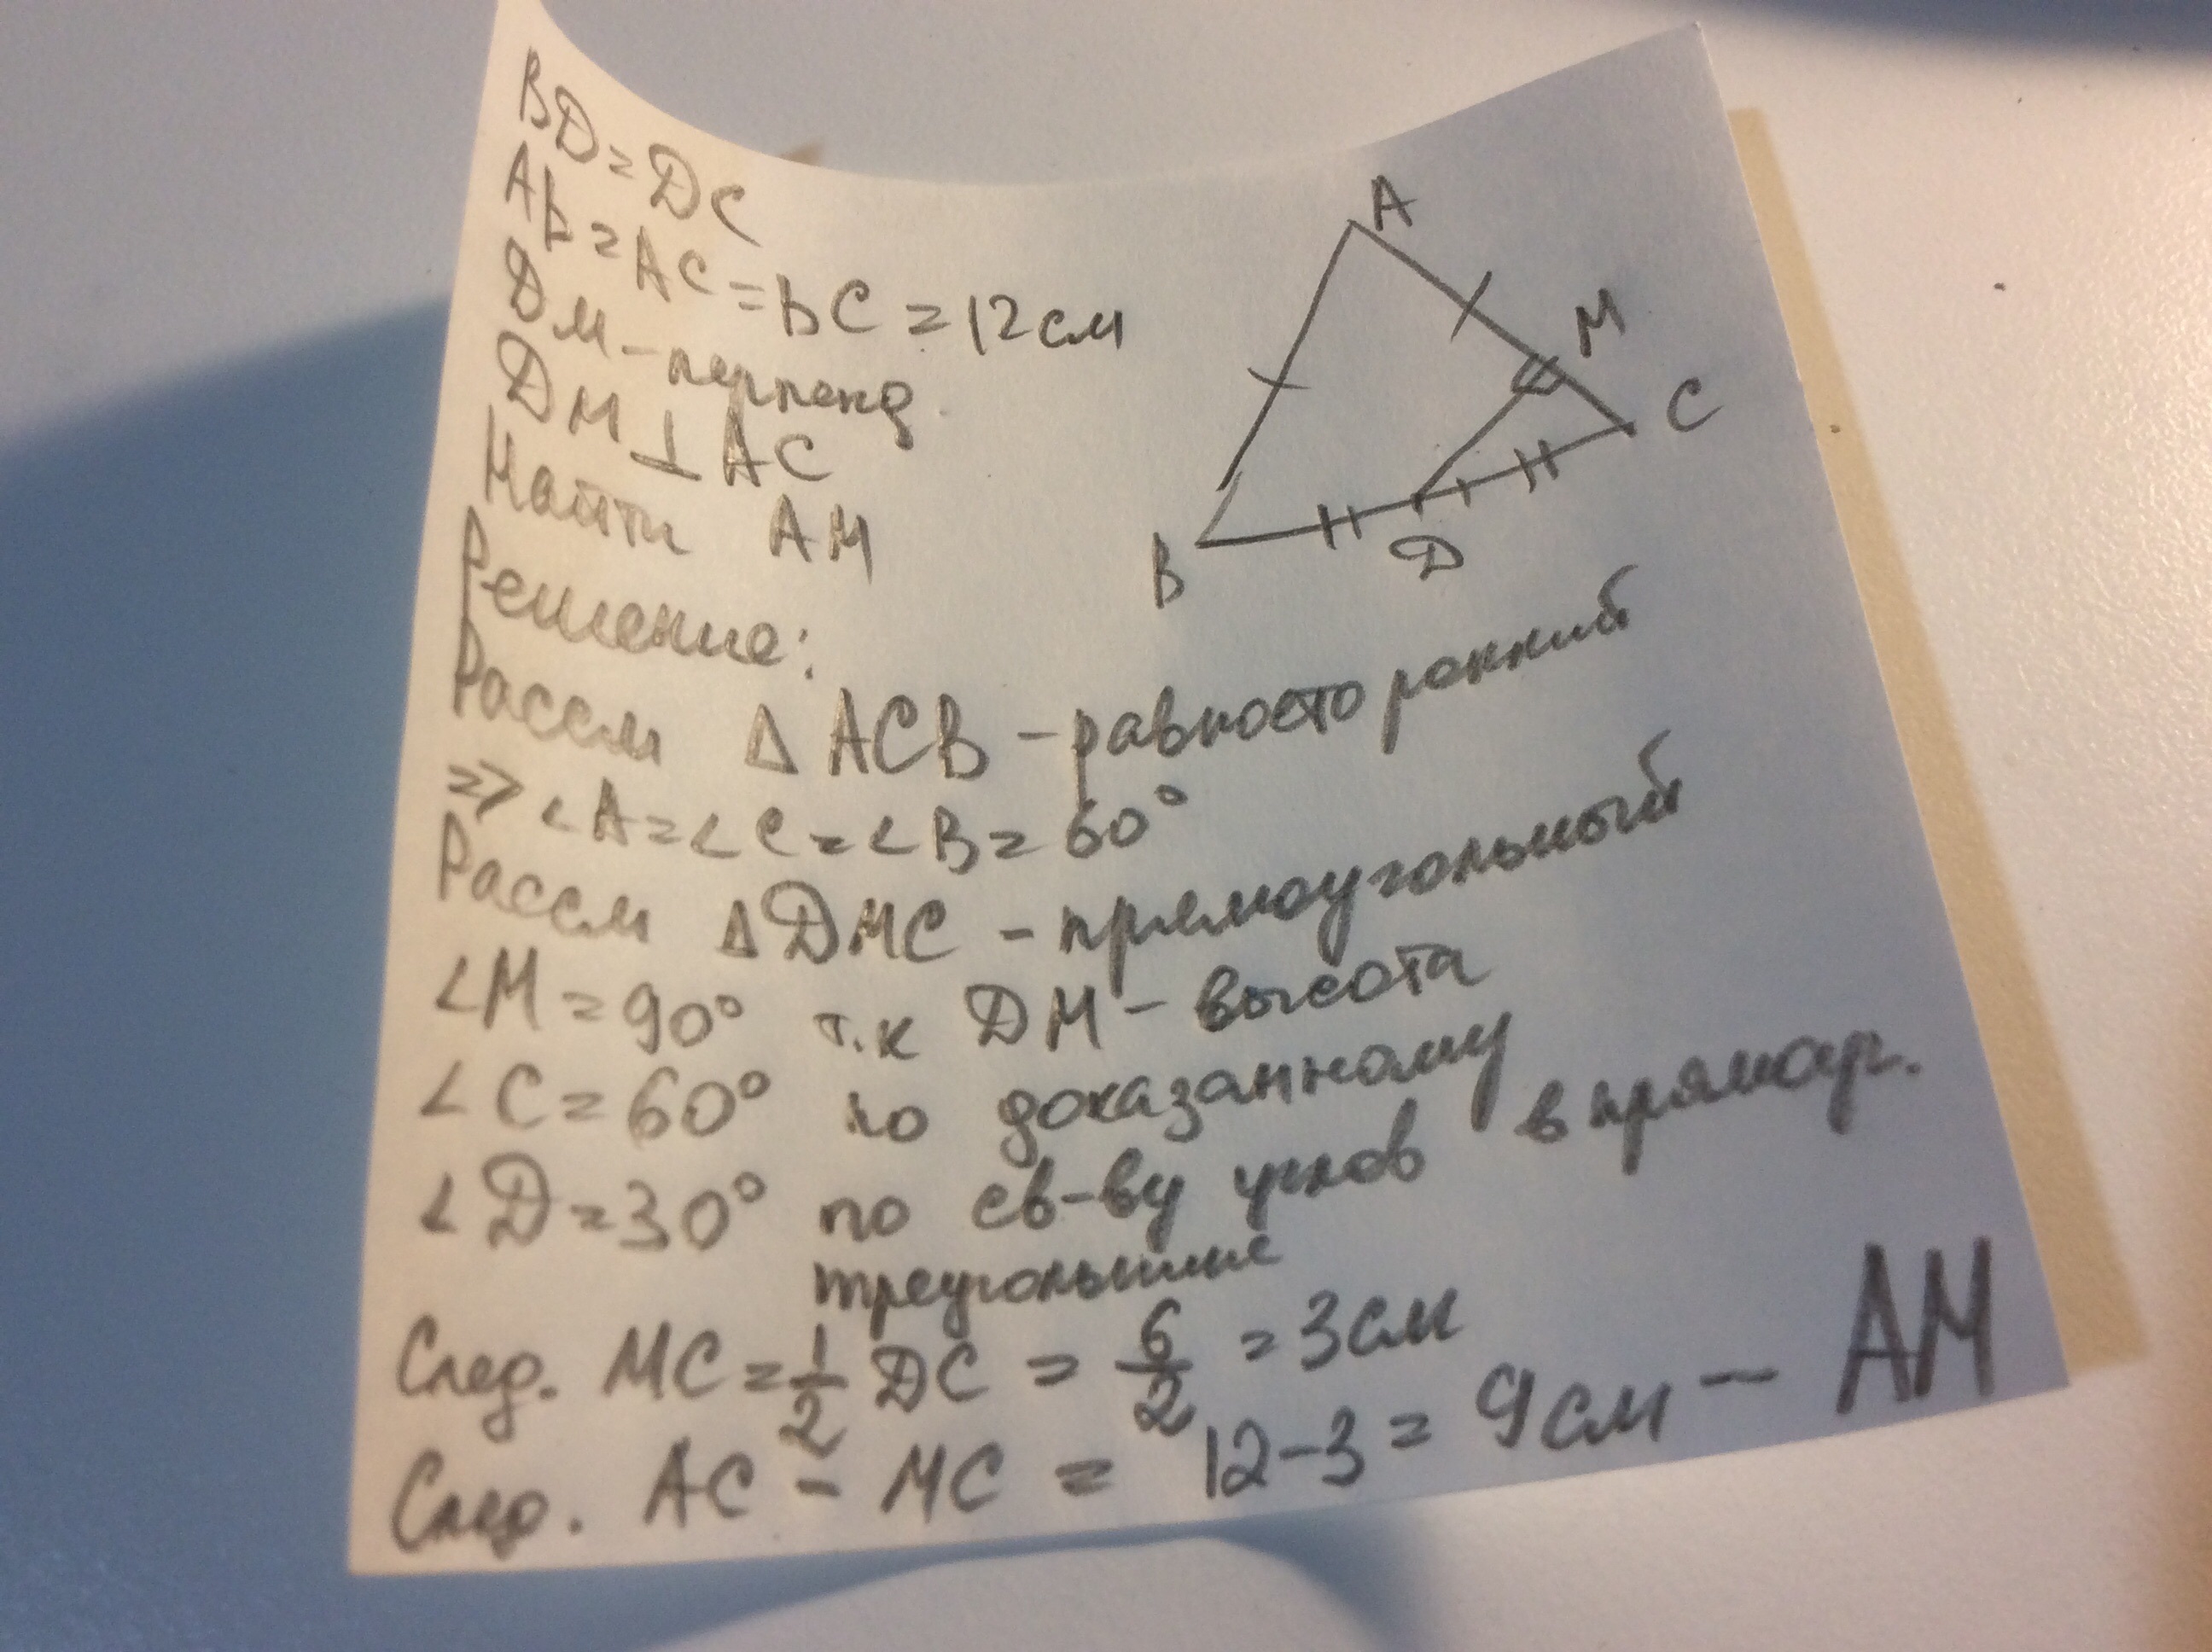 BD = DC
AB = AC = BC = 12 см
DM – перпенд.
DM ⊥ AC
Найти AM
A
M
C
B
D
Решение:
Рассм Δ ACB – равносторонний
⇒ ∠A = ∠C = ∠B = 60°
Рассм Δ DMC – прямоугольный
∠M = 90° т.к DM – высота
∠C = 60° по доказанному
∠D = 30° по св-ву углов в прямоуг.
треугольнике
След. MC = 1/2 DC = 6/2 = 3 см
След. AC – MC = 12 – 3 = 9 см – AM